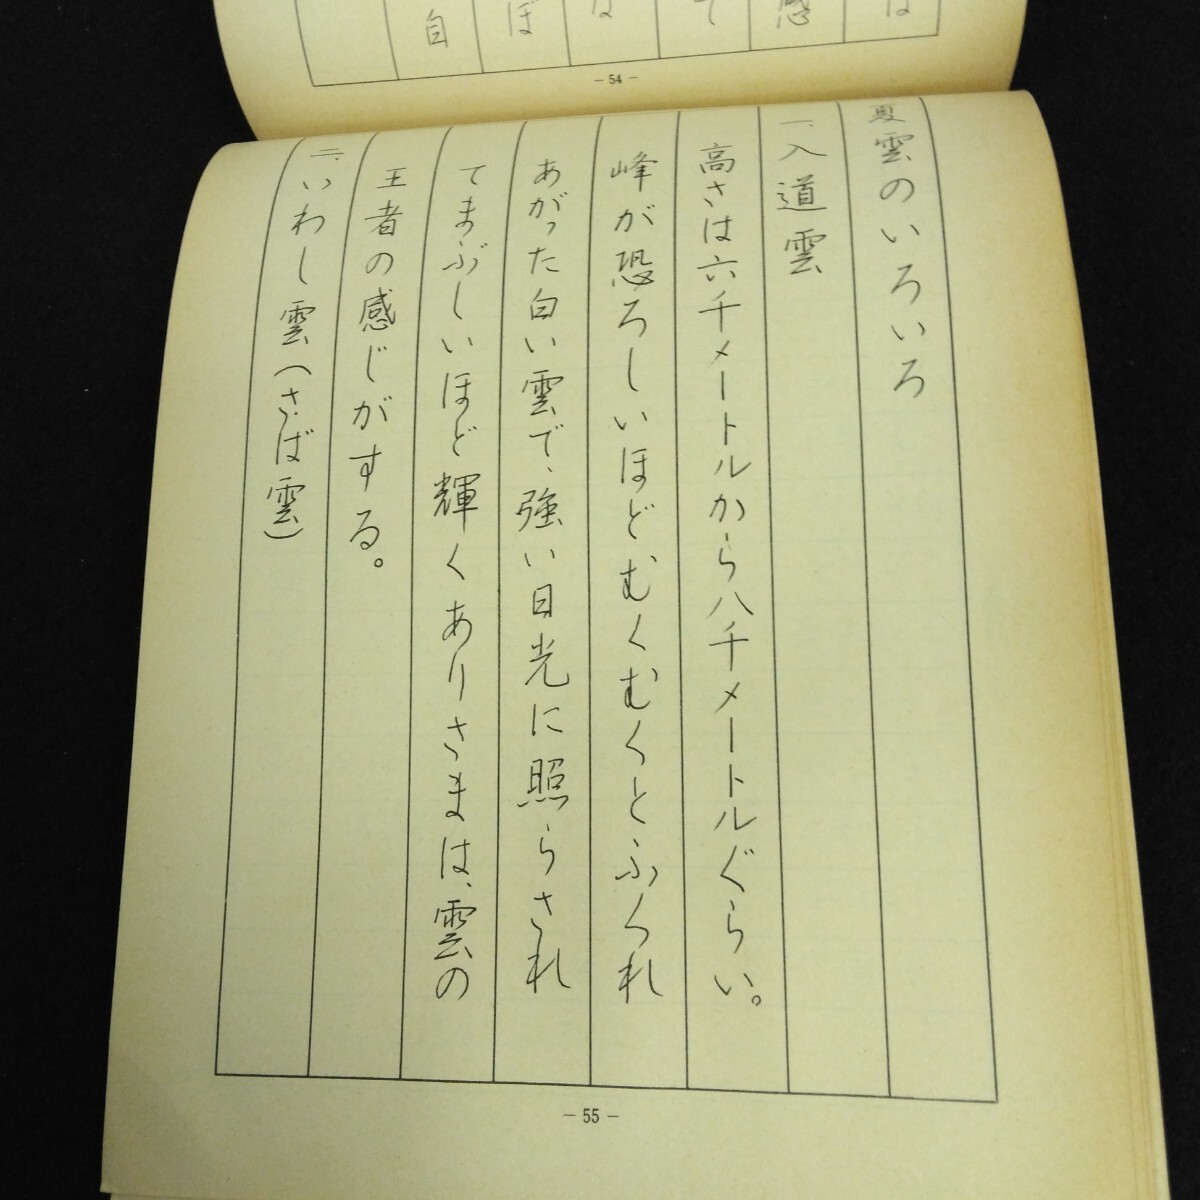 は
感
て
ぼ
自
— 54 —
夏雲のいろいろ
一、入道雲
高さは六千メートルから八千メートルぐらい。
峰が恐ろしいほどむくむくとふくれ
あがった白い雲で、強い日光に照らされ
てまぶしいほど輝くありさまは、雲の
王者の感じがする。
二、いわし雲(さば雲)
— 55 —